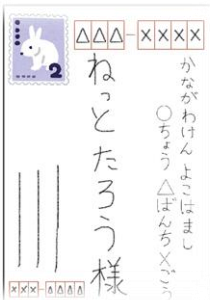 2
△△△-××××
かながわけん よこはまし
○ちょう △ばんち ×ごう
ねっと たろう 様
×××-△△△△